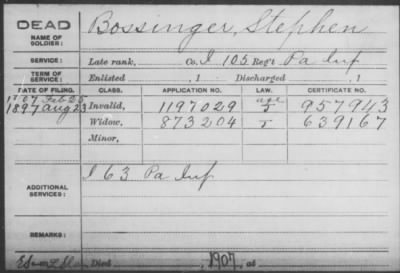 DEAD Bossinger, Stephen
NAME OF SOLDIER:
SERVICE: Late rank, Co. I 105 Reg't Pa Inf
TERM OF SERVICE: Enlisted , 1 Discharged , 1
DATE OF FILING. CLASS. APPLICATION NO. LAW. CERTIFICATE NO.
1907 Feb 25 Invalid, 1197029 age 957943
1897 Aug 23 Widow, 873204 639167
Minor,
ADDITIONAL SERVICES: I 63 Pa Inf
REMARKS:
Died , 1907, at